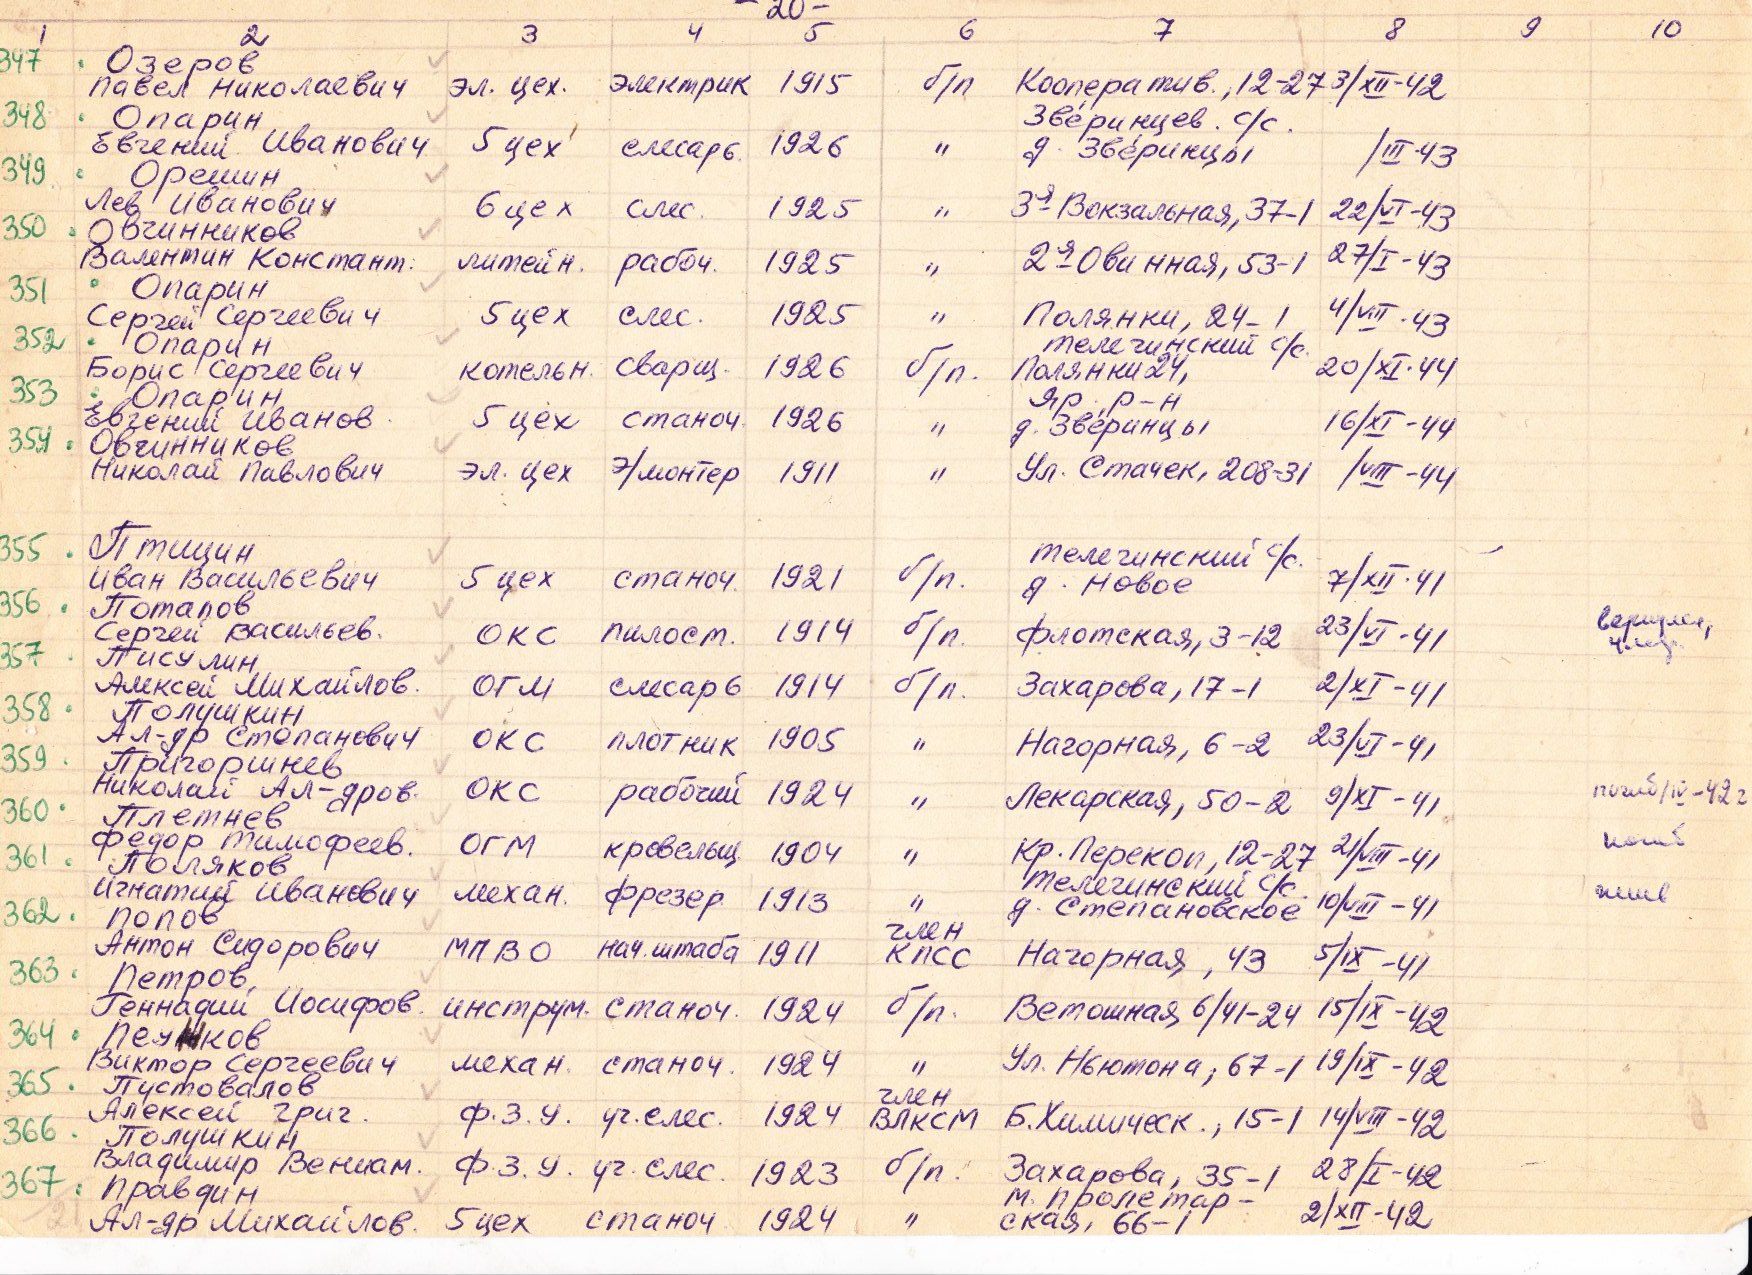 - 20 -
1 2 3 4 5 6 7 8 9 10
347 Озеров
Павел Николаевич эл. цех. электрик 1915 б/п Кооператив., 12-27 3/XII-42
348 Опарин Зверинцев. с/с.
Евгений Иванович 5 цех слесарь 1926 " д. Зверинцы /III-43
349 Орешин
Лев Иванович 6 цех слес. 1925 " 3я Вокзальная, 37-1 22/VI-43
350 Овчинников
Валентин Констант. литейн. рабоч. 1925 " 2я Овинная, 53-1 27/I-43
351 Опарин
Сергей Сергеевич 5 цех слес. 1925 " Полянки, 24-1 4/VIII-43
352 Опарин Телегинский с/с.
Борис Сергеевич котельн. сварщ. 1926 б/п. Полянки 24, 20/XI-44
353 Опарин Яр. р-н
Евгений Иванов. 5 цех станоч. 1926 " д. Зверинцы 16/XI-44
354 Овчинников
Николай Павлович эл. цех э/монтер 1911 " Ул. Стачек, 208-31 /VIII-44
355 Птицин Телегинский с/с.
Иван Васильевич 5 цех станоч. 1921 б/п. д. Новое 7/XII-41
356 Потапов
Сергей Васильев. ОКС пилост. 1914 б/п. Флотская, 3-12 23/VI-41 вернулся,
357 Писулин
Алексей Михайлов. ОГМ слесарь 1914 б/п. Захарова, 17-1 2/XI-41
358 Полушкин
Ал-др Степанович ОКС плотник 1905 " Нагорная, 6-2 23/VI-41
359 Пригоршнев
Николай Ал-дров. ОКС рабочий 1924 " Лекарская, 50-2 9/XI-41 погиб/IV-42 г
360 Плетнев
Федор Тимофеев. ОГМ кровельщ. 1904 " Кр. Перекоп, 12-27 21/VIII-41 погиб
361 Поляков Телегинский с/с.
Игнатий Иванович механ. фрезер. 1913 " д. Степановское 10/VIII-41
362 Попов член
Антон Сидорович МПВО нач. штаба 1911 КПСС Нагорная, 43 5/IX-41
363 Петров,
Геннадий Иосифов. инструм. станоч. 1924 б/п. Ветошная 6/41-24 15/IX-42
364
Виктор Сергеевич механ. станоч. 1924 " Ул. Ньютона, 67-1 19/IX-42
365 Пустовалов член
Алексей Григ. Ф.З.У. уч. слес. 1924 ВЛКСМ Б. Химическ., 15-1 14/VIII-42
366 Полушкин
Владимир Вениам. Ф.З.У. уч. слес. 1923 б/п. Захарова, 35-1 28/I-42
367 Правдин М. Пролетар-
Ал-др Михайлов. 5 цех станоч. 1924 " ская, 66-1 2/XII-42